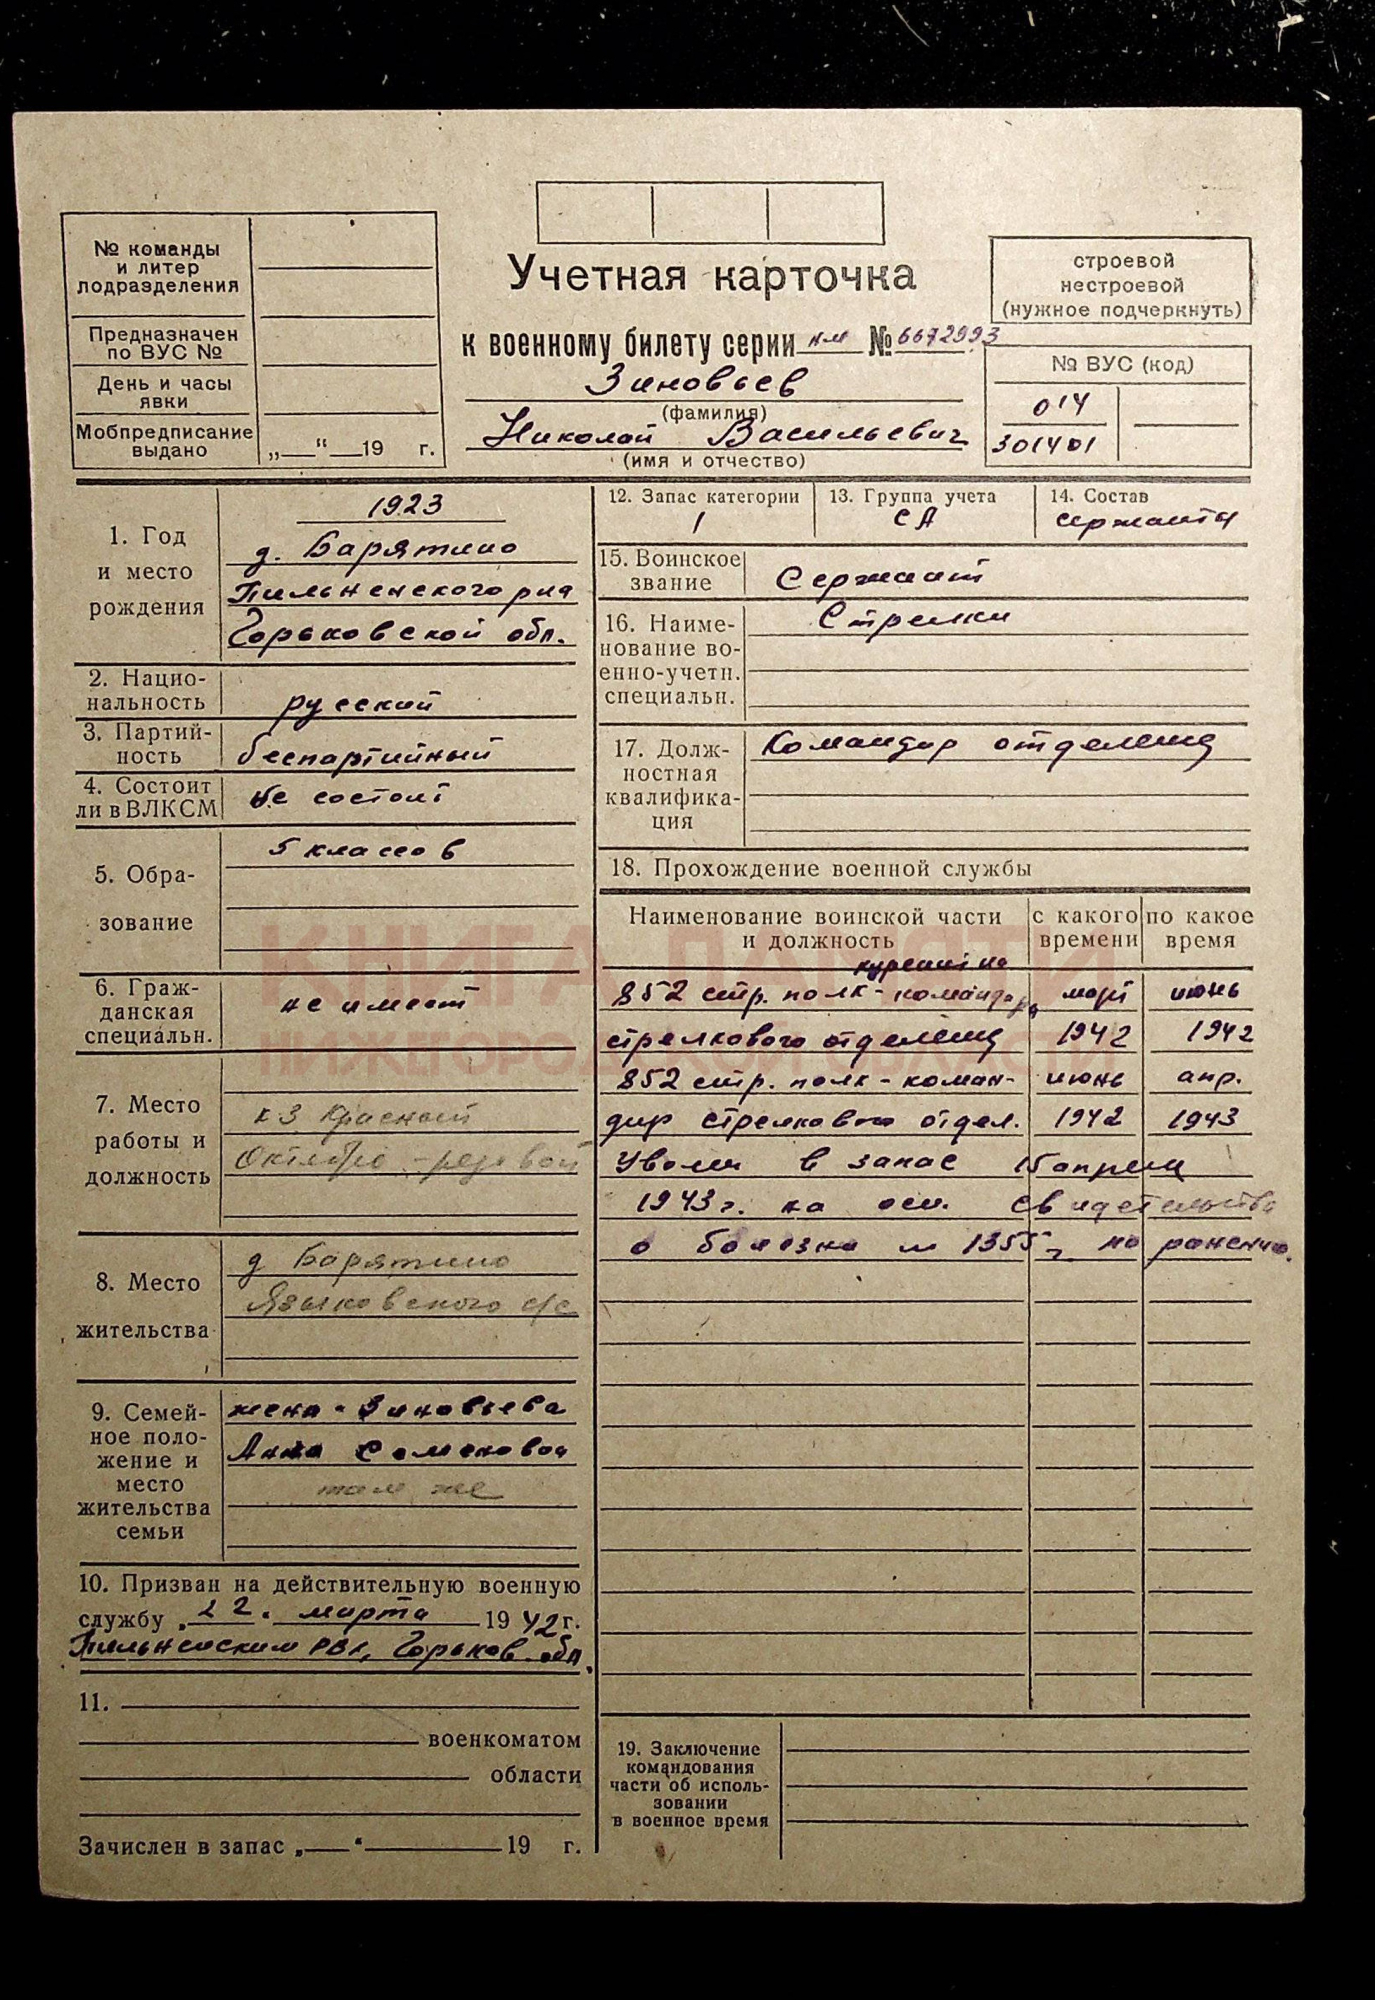 № команды
и литер
подразделения
Предназначен
по ВУС №
День и часы
явки
Мобпредписание
выдано
„ “ 19 г.
Учетная карточка
к военному билету серии нм № 6672993
Зиновьев
(фамилия)
Николай Васильевич
(имя и отчество)
строевой
нестроевой
(нужное подчеркнуть)
№ ВУС (код)
014
301401
1. Год
и место
рождения
1923
д. Барятино
Пильненского рна
Горьковской обл.
2. Нацио-
нальность
русский
3. Партий-
ность
беспартийный
4. Состоит
ли в ВЛКСМ
не состоит
5. Обра-
зование
5 классов
6. Граж-
данская
специальн.
не имеет
7. Место
работы и
должность
кз Красный
Октябрь - рядовой
8. Место
жительства
д Барятино
Языковского с/с
9. Семей-
ное поло-
жение и
место
жительства
семьи
жена - Зиновьева
Анна Семеновой
там же
10. Призван на действительную военную
службу „22“ марта 1942 г.
Пильненским РВК, Горьков. обл.
11.
военкоматом
области
Зачислен в запас „ “ 19 г.
12. Запас категории
1
13. Группа учета
СА
14. Состав
сержанты
15. Воинское
звание
Сержант
16. Наиме-
нование во-
енно-учетн.
специальн.
Стрелки
17. Долж-
ностная
квалифика-
ция
Командир отделения
18. Прохождение военной службы
Наименование воинской части
и должность
с какого
времени
по какое
время
852 стр. полк - командира март июнь
стрелкового отделения 1942 1942
852 стр. полк - коман- июнь апр.
дир стрелкового отдел. 1942 1943
Уволен в запас 15 апреля
1943 г. на осн. свидетельства
о болезни № 1355, по ранению.
19. Заключение
командования
части об исполь-
зовании
в военное время
КНИГА ПАМЯТИ
НИЖЕГОРОДСКОЙ ОБЛАСТИ